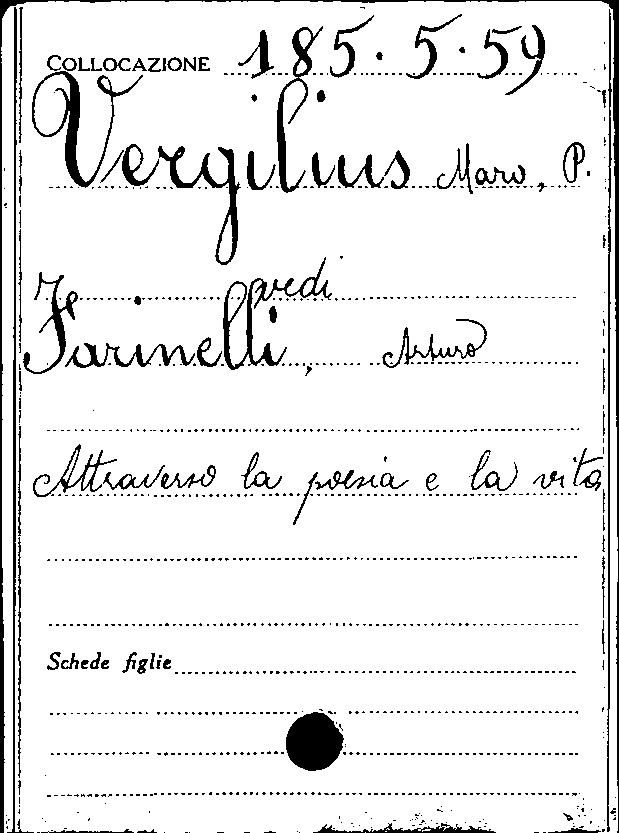 COLLOCAZIONE 185.5.59
Vergilius Maro, P.
vedi
Farinelli, Arturo
Attraverso la poesia e la vita
Schede figlie